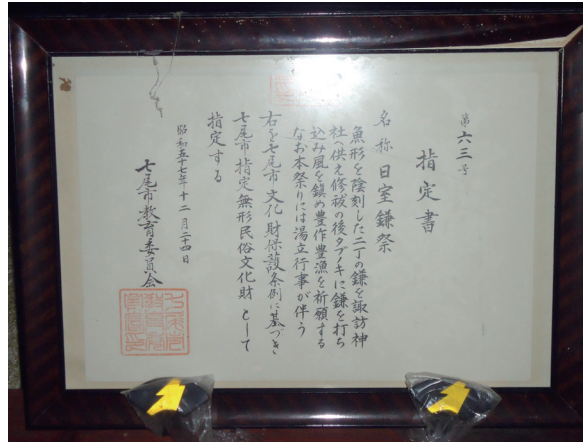 第六三号
指定書
名称 日室鎌祭
魚形を陰刻した二丁の鎌を諏訪神
社へ供え修祓の後タブノキに鎌を打ち
込み風を鎮め豊作豊漁を祈願する
なお本祭りには湯立行事が伴う
右を七尾市文化財保護条例に基づき
七尾市指定無形民俗文化財として
指定する
昭和五十七年十二月二十四日
七尾市教育委員会